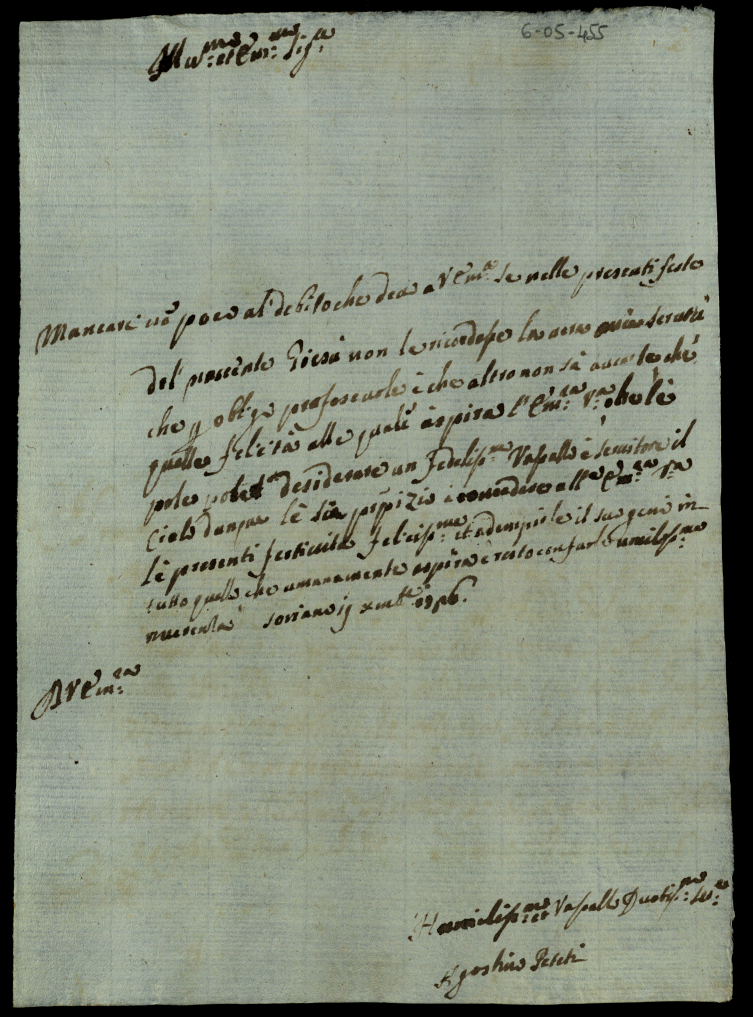 6-05-455
Em:mo Sig:re
Mancarei poco al debito che devo a V Em:za se nelle presenti feste
del nascente Giesù non le ricordasse la vera mia servitù
che obligo professarle è che altro non sà
quella felicità alle quale aspira l'Em:za V:ra
desiderare un fedelis:mo Vassallo è servitore il
Cielo dunque lè sia propizio à concedere all'Em:za V:ra
lè presenti festività felicis:me et adempirle il suo genio in
tutto quello che umanamente aspira è resto con farle umilis:ma
riverenza Soriano
D V Em:za
Humilis:mo et Vassallo Devotis:mo Ser:re
Agostino